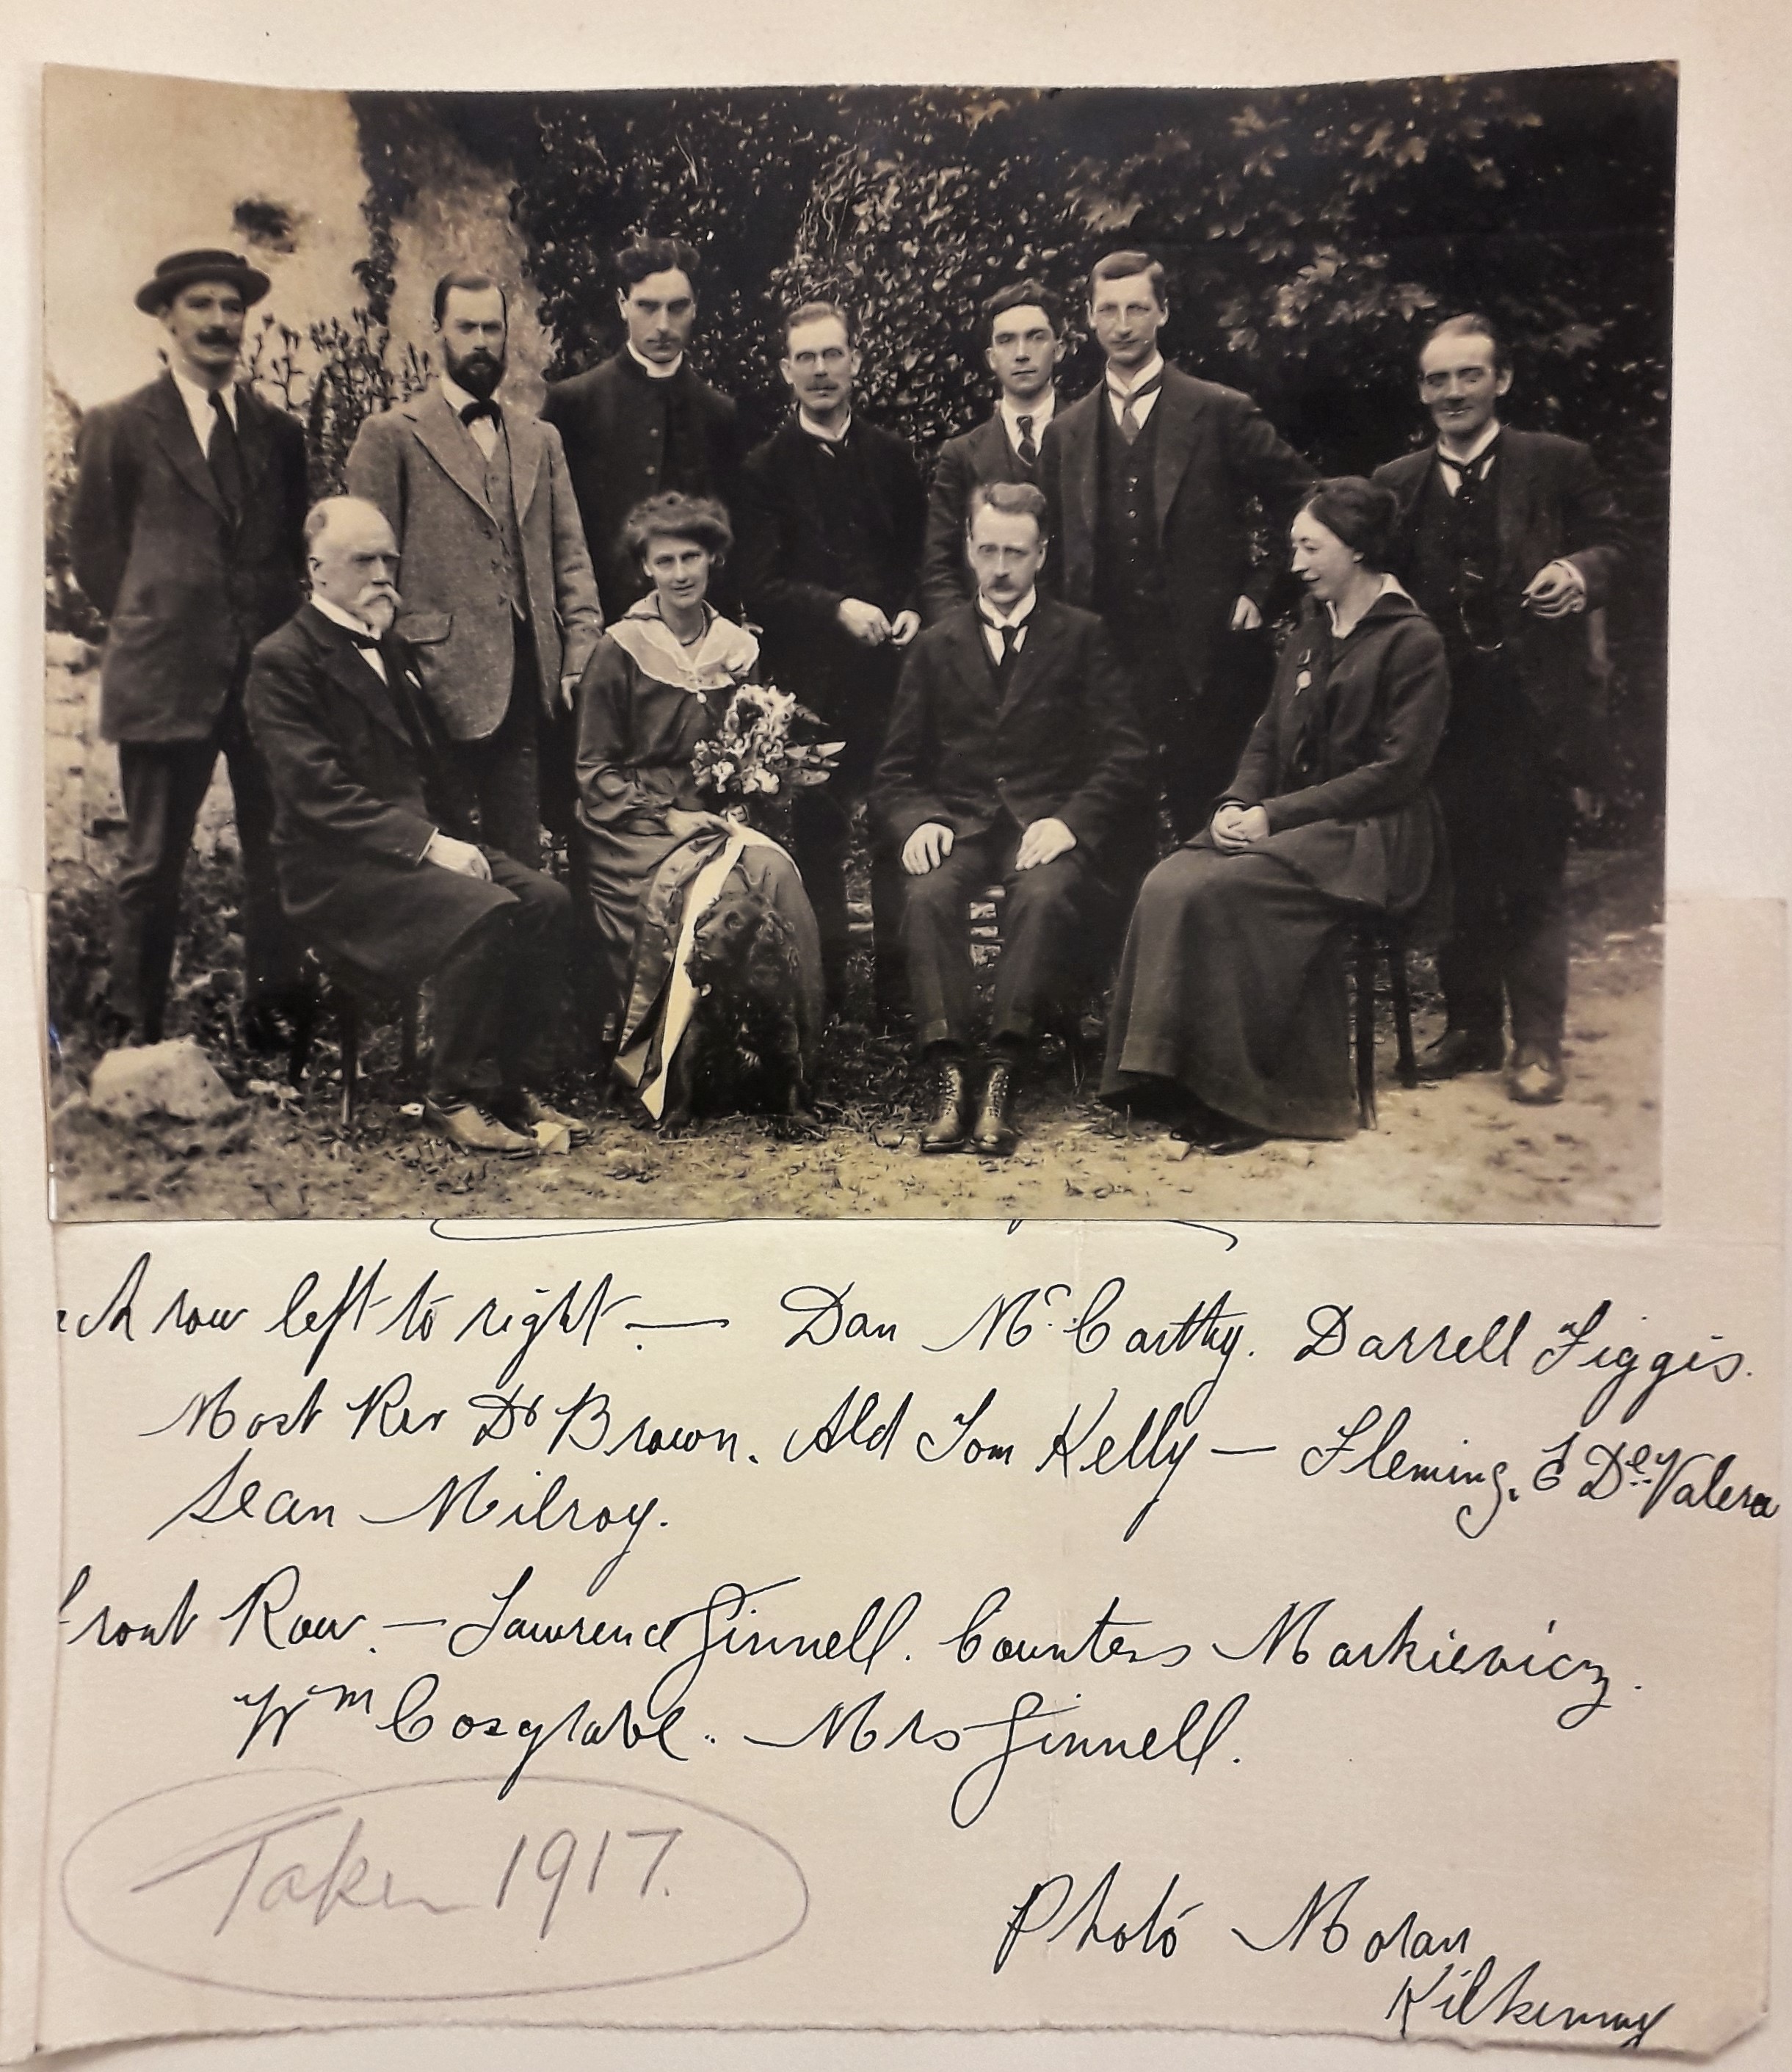 ck row left to right — Dan McCarthy. Darrell Figgis.
Most Rev Dr Brown. Ald Tom Kelly — Fleming. E De Valera
Sean Milroy.
Front Row. — Lawrence Ginnell. Countess Markievicz.
Wm Cosgrave. Mrs Ginnell.
Taken 1917.
Photo Moran
Kilkenny